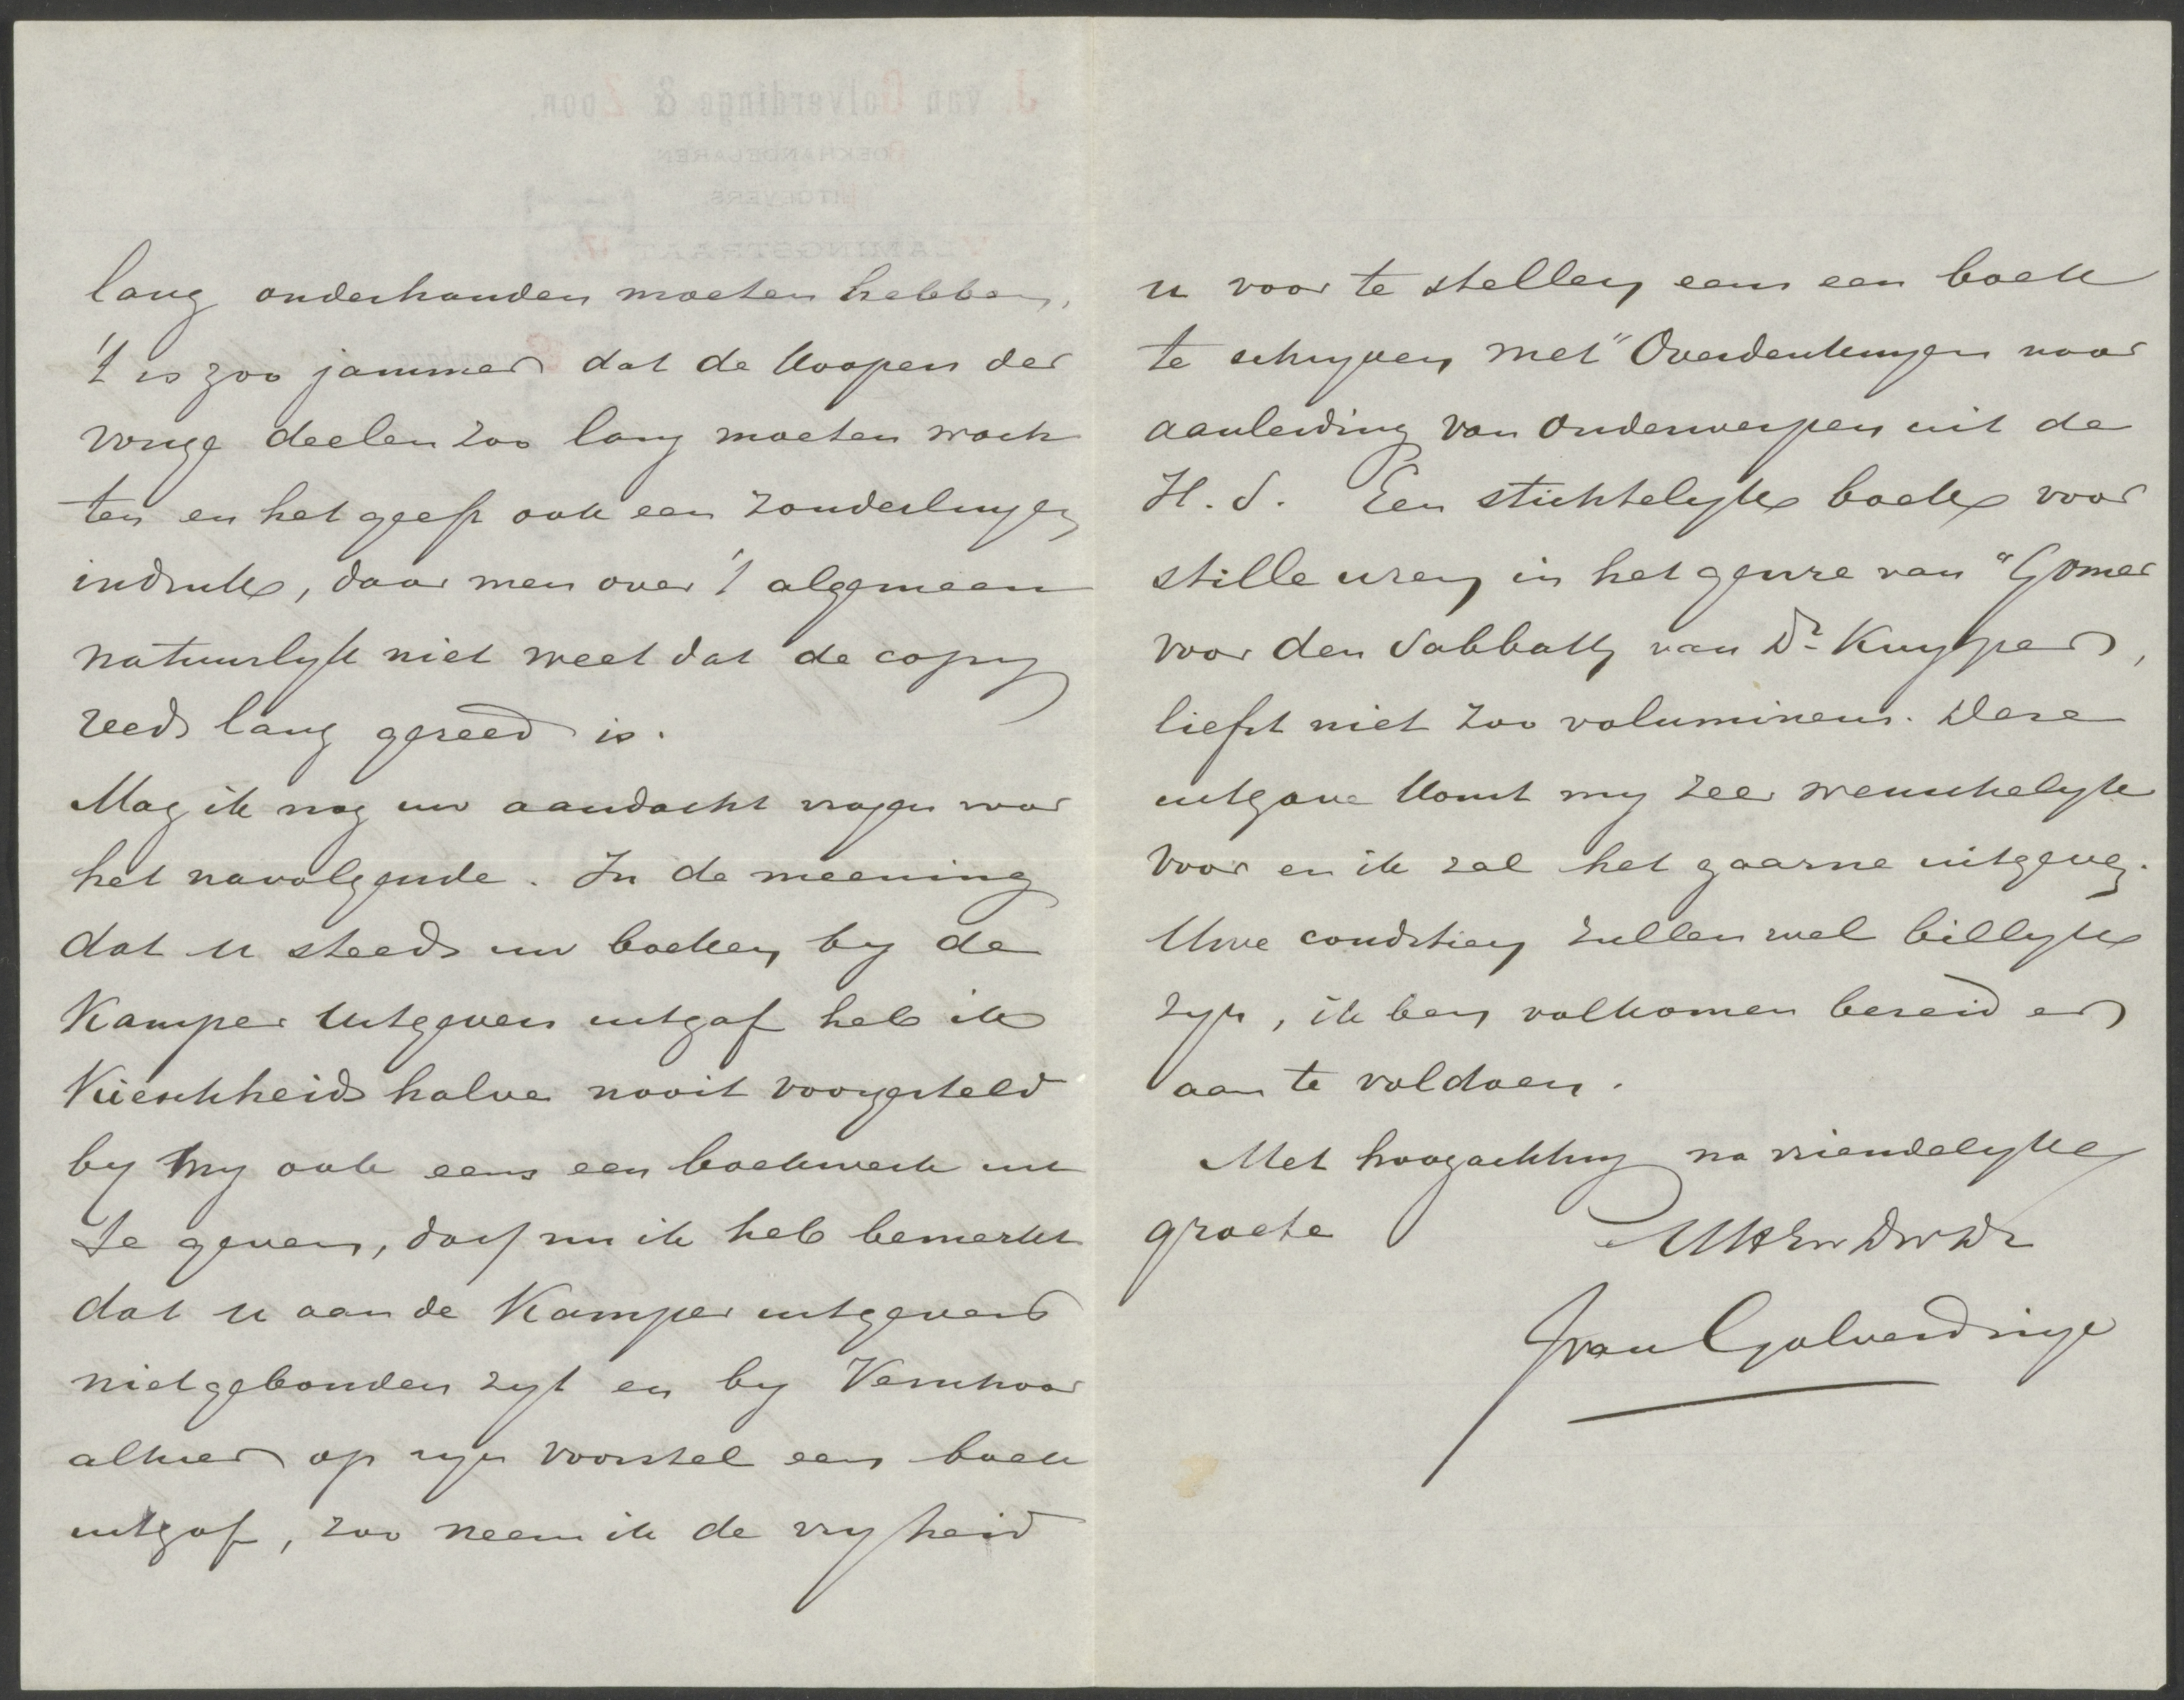 lang onderhanden moeten hebben,
't is zoo jammer dat de koopers der
vorige deelen zoo lang moeten wach
ten en het geeft ook een zonderlingen
indruk, daar men over 't algemeen
natuurlyk niet weet dat de copy
reeds lang gereed is.
Mag ik nog uw aandacht vragen voor
het navolgende. In de meening
dat u steeds uw boeken by de
Kamper Uitgevers uitgaf heb ik
Kieschheidshalve nooit voorgesteld
by my ook eens een boekwerk uit
te geven, doch nu ik heb bemerkt
dat u aan de Kamper uitgevers
niet gebonden zyt en by
alhier op zyn voorstel een boek
uitgaf, zoo neem ik de vryheid
u voor te stellen eens een boek
te schryven met "Overdenkingen naar
aanleiding van Onderwerpen uit de
H. S. Een stichtelyk boek voor
stille uren, in het genre van "Gomer
voor den Sabbath van Dr Kuyper,
liefst niet zoo volumineus. Deze
uitgave komt my zeer wenschelyk
voor en ik zal het gaarne uitgeven.
Uwe conditien zullen wel billyk
zyn, ik ben volkomen bereid er
aan te voldoen.
Met hoogachting na vriendelyke
groete UwEw DwDr
J van Golverdinge
J. van Golverdinge & Zoon.
BOEKHANDELAREN
UITGEVERS
VLAMINGSTRAAT